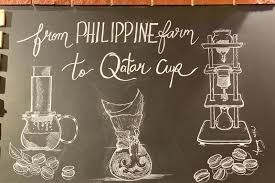 from PHILIPPINE farm
to Qatar Cup